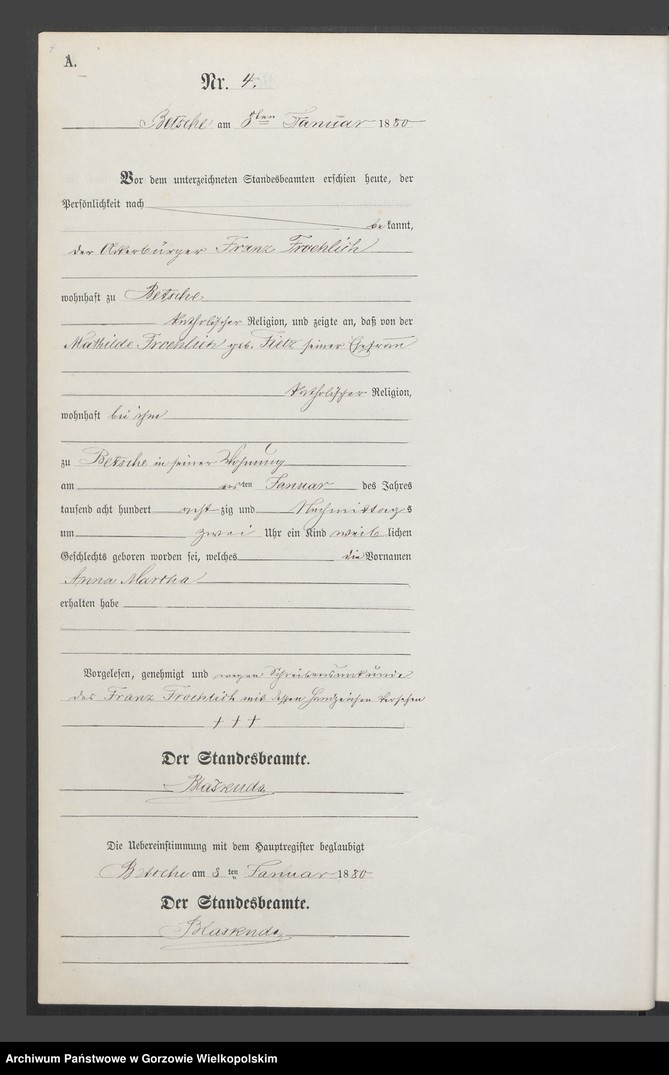 A.
Nr. 4.
Betsche am 8ten Januar 1880
Vor dem unterzeichneten Standesbeamten erschien heute, der
Persönlichkeit nach
bekannt,
der Ackerbürger Franz Froehlich
wohnhaft zu Betsche
katholischer Religion, und zeigte an, daß von der
Mathilde Froehlich geb. Fietz seiner Ehefrau
katholischer Religion,
wohnhaft bei ihm
zu Betsche in seiner Wohnung
am ersten Januar des Jahres
tausend acht hundert acht zig und Nachmittags
um zwei Uhr ein Kind weib lichen
Geschlechts geboren worden sei, welches die Vornamen
Anna Martha
erhalten habe
Vorgelesen, genehmigt und wegen Schreibensunkunde
des Franz Froehlich mit dessen Handzeichen versehen
+ + +
Der Standesbeamte.
Die Uebereinstimmung mit dem Hauptregister beglaubigt
Betsche am 8 ten Januar 1880
Der Standesbeamte.
Archiwum Państwowe w Gorzowie Wielkopolskim